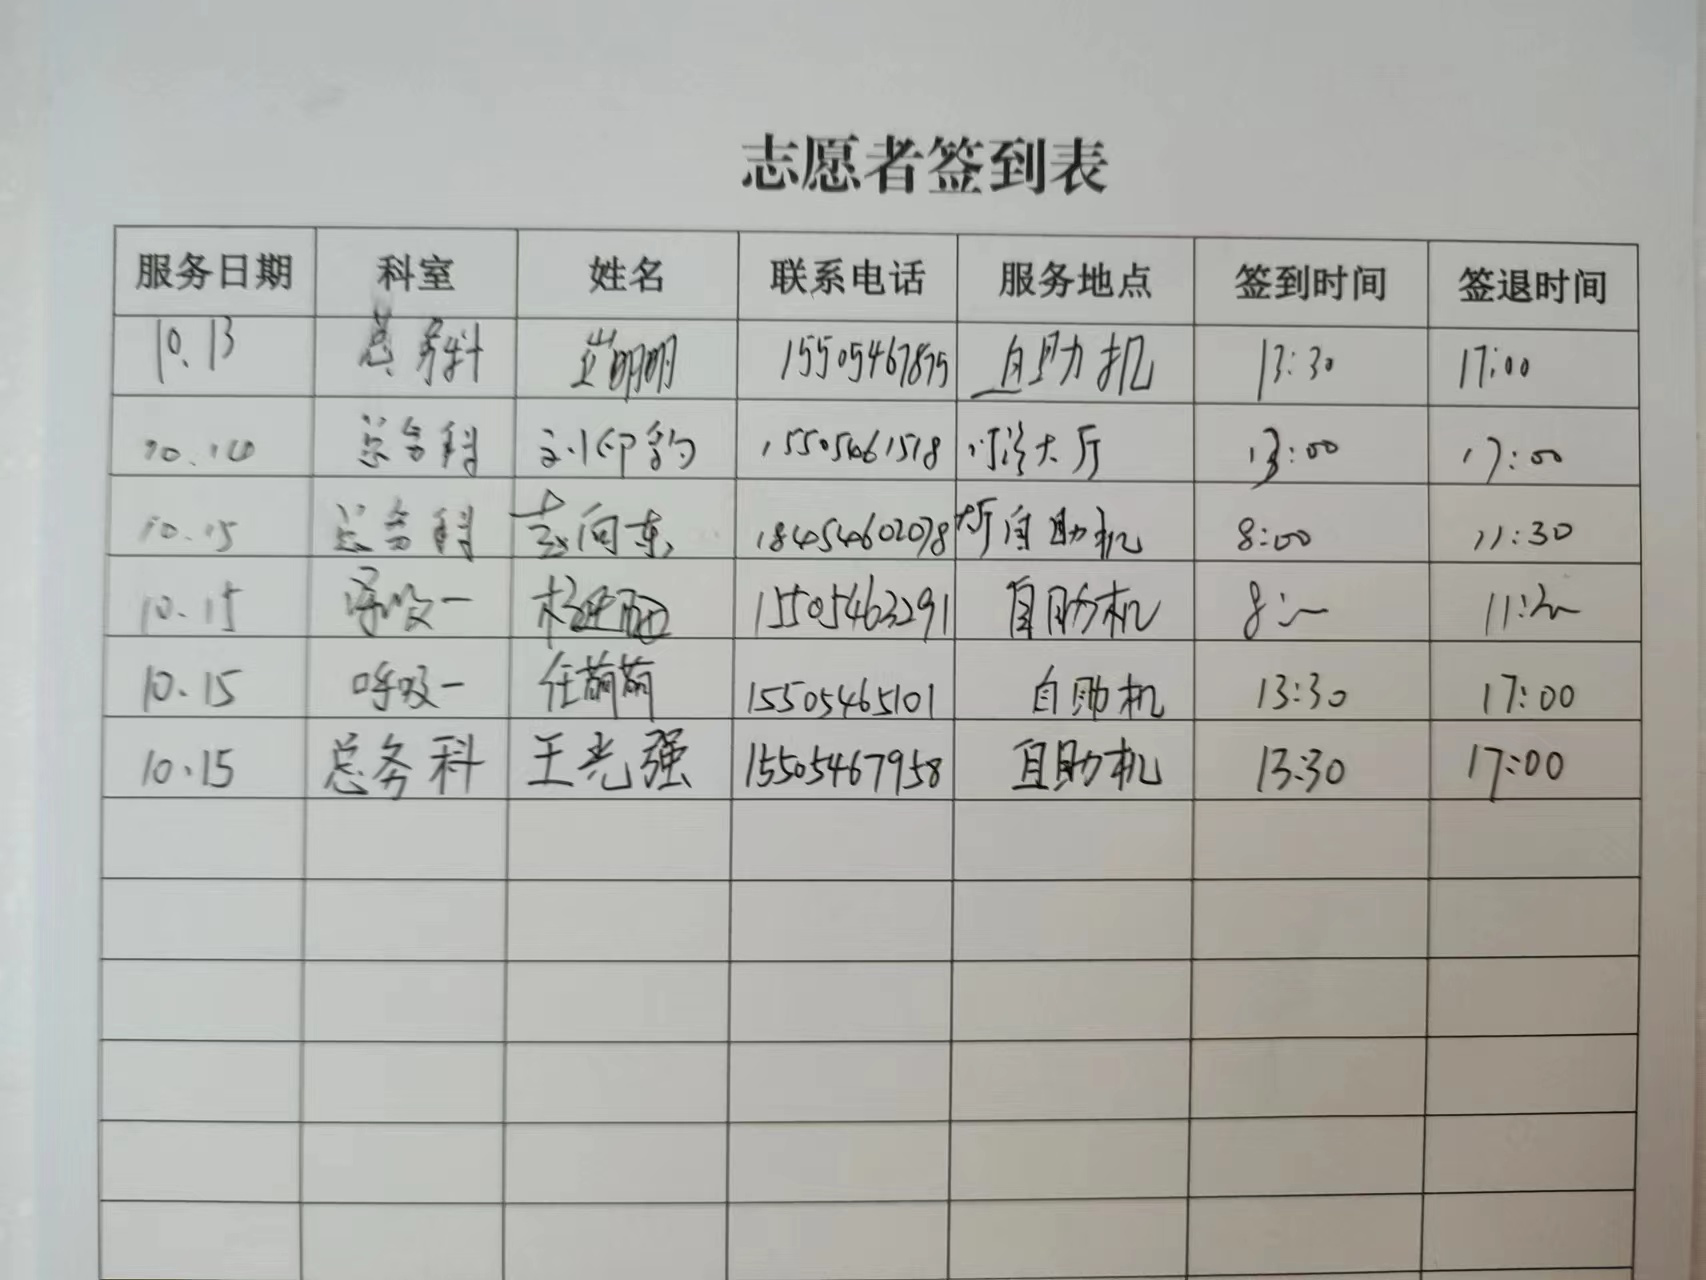 志愿者签到表
服务日期 科室 姓名 联系电话 服务地点 签到时间 签退时间
10.13 总务科 明明 15505467875 自助机 13:30 17:00
10.14 总务科 刘印 15505461518 门诊大厅 13:00 17:00
10.15 总务科 向东 18454602078 大厅自助机 8:00 11:30
10.15 呼吸一 杨 15505463291 自助机 8: 11:
10.15 呼吸一 任萌萌 15505465101 自助机 13:30 17:00
10.15 总务科 王光强 15505467958 自助机 13:30 17:00